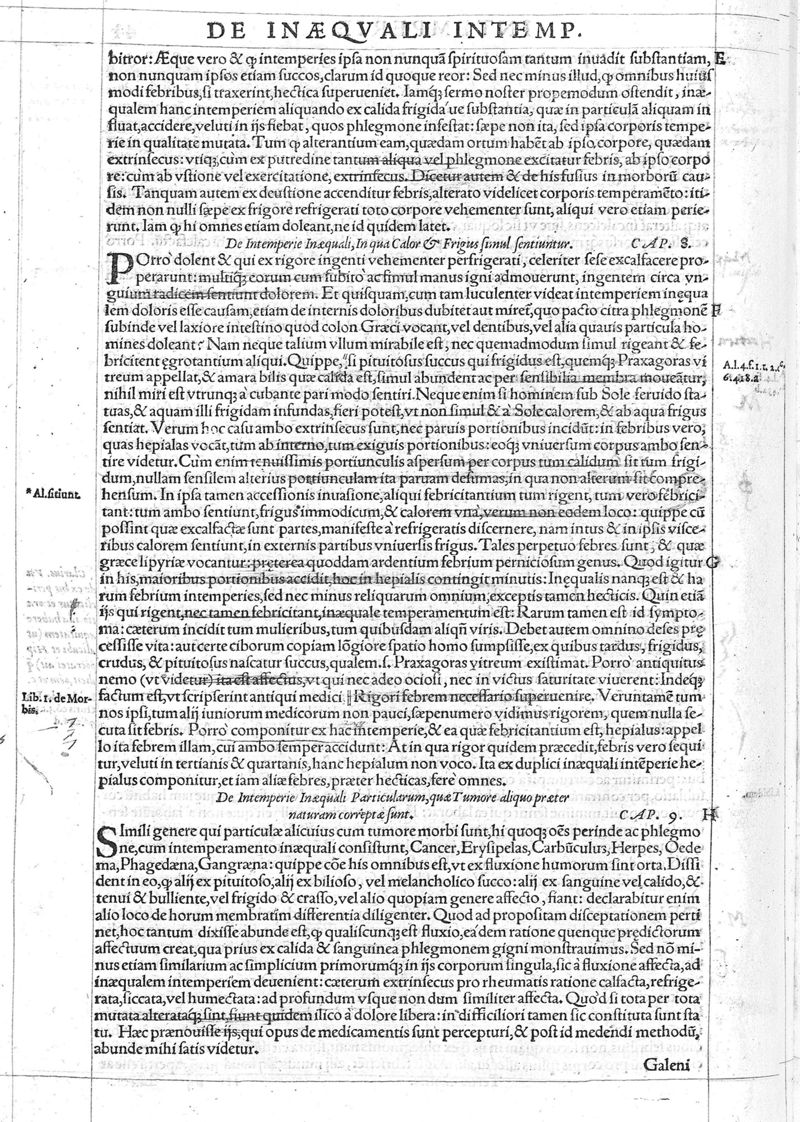 DE INÆQVALI INTEMP.
bitror: Æque vero & ꝙ intemperies ipsa non nunquā spirituosam tantum inuadit substantiam, E
non nunquam ipsos etiam succos, clarum id quoque reor: Sed nec minus illud, ꝙ omnibus huius
modi febribus, si traxerint, hectica superueniet. Iamq; sermo noster propemodum ostendit, inæ-
qualem hanc intemperiem aliquando ex calida frigida´ue substantia, quæ in particulā aliquam in
fluat, accidere, veluti in ijs fiebat, quos phlegmone infestat: sæpe non ita, sed ipsa corporis tempe-
rie in qualitate mutata. Tum ꝙ alterantium eam, quædam ortum habēt ab ipso corpore, quædam
extrinsecus: vtiq;, cum ex putredine tantum aliqua vel phlegmone excitatur febris, ab ipso corpo
re: cum ab vstione vel exercitatione, extrinsecus. Dicetur autem & de his fusius in morborū cau-
sis. Tanquam autem ex deustione accenditur febris, alterato videlicet corporis temperamēto: iti-
dem non nulli sæpe ex frigore refrigerati toto corpore vehementer sunt, aliqui vero etiam perie-
runt. Iam ꝙ hi omnes etiam doleant, ne id quidem latet.
De Intemperie Inæquali, In qua Calor & Frigus simul sentiuntur. CAP. 8.
POrro` dolent & qui ex rigore ingenti vehementer perfrigerati, celeriter sese excalfacere pro-
perarunt: multiq; eorum cum subito` ac simul manus igni admouerunt, ingentem circa vn-
guium radicem sentiunt dolorem. Et quisquam, cum tam luculenter videat intemperiem inęqua
lem doloris esse causam, etiam de internis doloribus dubitet aut miret̃, quo pacto citra phlegmonē F
subinde vel laxiore intestino quod colon Græci vocant, vel dentibus, vel alia quauis particula ho-
mines doleant? Nam neque talium vllum mirabile est, nec quemadmodum simul rigeant & fe-
bricitent ęgrotantium aliqui. Quippe, si pituitosus succus qui frigidus est, quemq; Praxagoras vi
treum appellat, & amara bilis quæ calida est, simul abundent ac per sensibilia membra moueātur,
nihil miri est vtrunq; a` cubante pari modo sentiri. Neque enim si hominem sub Sole feruido sta-
tuas, & aquam illi frigidam infundas, fieri potest, vt non simul & a` Sole calorem, & ab aqua frigus
sentiat. Verum hoc casu ambo extrinsecus sunt, nec paruis portionibus incidūt: in febribus vero,
quas hepialas vocāt, tum ab interno, tum exiguis portionibus: eoq; vniuersum corpus ambo sen-
tire videtur. Cum enim tenuissimis portiunculis aspersum per corpus tum calidum sit tum frigi-
dum, nullam sensilem alterius portiunculam ita paruam desumas, in qua non alterum sit compre-
hensum. In ipsa tamen accessionis inuasione, aliqui febricitantium tum rigent, tum vero febrici-
tant: tum ambo sentiunt, frigus immodicum, & calorem vna`, verum non eodem loco: quippe cū
possint quæ excalfactæ sunt partes, manifeste a` refrigeratis discernere, nam intus & in ipsis visce-
ribus calorem sentiunt, in externis partibus vniuersis frigus. Tales perpetuo febres sunt, & quæ
græce lipyriæ vocantur: pręterea quoddam ardentium febrium perniciosum genus. Quod igitur G
in his, maioribus portionibus accidit, hoc in hepialis contingit minutis: Inęqualis nanq; est & ha
rum febrium intemperies, sed nec minus reliquarum omnium, exceptis tamen hecticis. Quin etiā
ijs qui rigent, nec tamen febricitant, inæquale temperamentum est: Rarum tamen est id sympto-
ma: cæterum incidit tum mulieribus, tum quibusdam aliqñ viris. Debet autem omnino deses prę
cessisse vita: aut certe ciborum copiam lōgiore spatio homo sumpsisse, ex quibus tardus, frigidus,
crudus, & pituitosus nascatur succus, qualem .s. Praxagoras vitreum existimat. Porro` antiquitus
nemo (vt videtur) ita est affectus, vt qui nec adeo ociosi, nec in victus saturitate viuerent: Indeq;
factum est, vt scripserint antiqui medici Rigori febrem necessario superuenire. Veruntamē tum
nos ipsi, tum alij iuniorum medicorum non pauci, sæpenumero vidimus rigorem, quem nulla se-
cuta sit febris. Porro` componitur ex hac intemperie, & ea quæ febricitantium est, hepialus: appel
lo ita febrem illam, cui ambo semper accidunt: At in qua rigor quidem præcedit, febris vero sequi
tur, veluti in tertianis & quartanis, hanc hepialum non voco. Ita ex duplici inæquali intēperie he-
pialus componitur, et iam aliæ febres, præter hecticas, fere` omnes.
De Intemperie Inæquali Particularum, quæ Tumore aliquo præter
naturam correptæ sunt. CAP. 9. H
SImili genere qui particulæ alicuius cum tumore morbi sunt, hi quoq; oēs perinde ac phlegmo
ne, cum intemperamento inæquali consistunt, Cancer, Erysipelas, Carbūculus, Herpes, Oede
ma, Phagedæna, Gangræna: quippe cōe his omnibus est, vt ex fluxione humorum sint orta. Dissi
dent in eo, ꝙ alij ex pituitoso, alij ex bilioso, vel melancholico succo: alij ex sanguine vel calido, &
tenui & bulliente, vel frigido & crasso, vel alio quopiam genere affecto, fiant: declarabitur enim
alio loco de horum membratim differentia diligenter. Quod ad propositam disceptationem perti
net, hoc tantum dixisse abunde est, ꝙ qualiscunq; est fluxio, ea´dem ratione quenque prędictorum
affectuum creat, qua prius ex calida & sanguinea phlegmonem gigni monstrauimus. Sed nō mi-
nus etiam similarium ac simplicium primorumq; in ijs corporum singula, sic a` fluxione affecta, ad
inæqualem intemperiem deuenient: cæterum extrinsecus pro rheumatis ratione calfacta, refrige-
rata, siccata, vel humectata: ad profundum vsque non dum similiter affecta. Quo`d si tota per tota
mutata alterataq; sint, fiunt quidem ilico a` dolore libera: in difficiliori tamen sic constituta sunt sta
tu. Hæc prænouisse ijs, qui opus de medicamentis sunt percepturi, & post id medendi methodū,
abunde mihi satis videtur.
Galeni
*Al. sitiunt.
Lib. 1. de Mor-
bis.